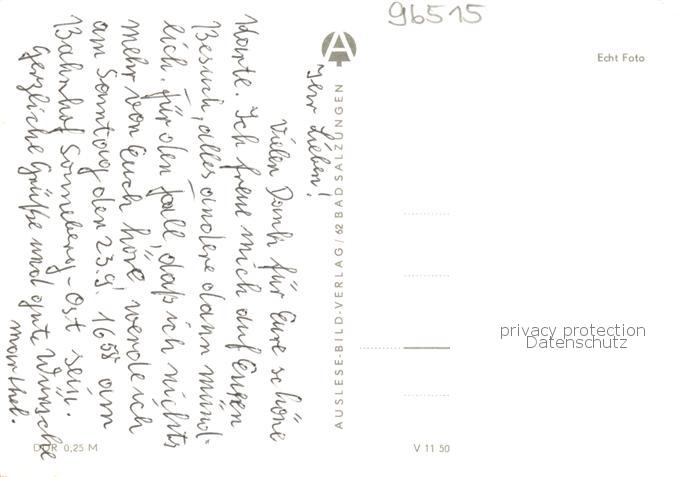 96515
Echt Foto
Ihr Lieben!
Vielen Dank für Eure schöne
Karte. Ich freue mich auf Euren
Besuch, alles andere dann münd-
lich. Für den Fall, daß ich nichts
mehr von Euch höre, werde ich
am Sonntag den 23.9. 16⁵⁸ am
Bahnhof Sonneberg-Ost sein.
Herzliche Grüße und gute Wünsche
Marthel.
AUSLESE-BILD-VERLAG / 62 BAD SALZUNGEN
privacy protection
Datenschutz
DDR 0,25 M
V 11 50